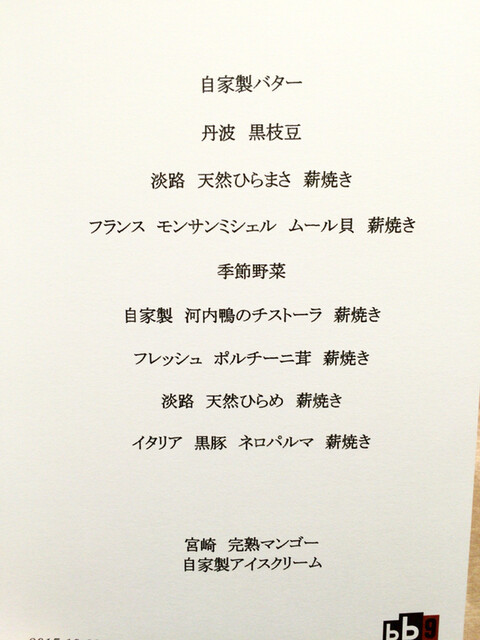 自家製バター
丹波　黒枝豆
淡路　天然ひらまさ　薪焼き
フランス　モンサンミシェル　ムール貝　薪焼き
季節野菜
自家製　河内鴨のチストーラ　薪焼き
フレッシュ　ポルチーニ茸　薪焼き
淡路　天然ひらめ　薪焼き
イタリア　黒豚　ネロパルマ　薪焼き
宮崎　完熟マンゴー
自家製アイスクリーム
bb9